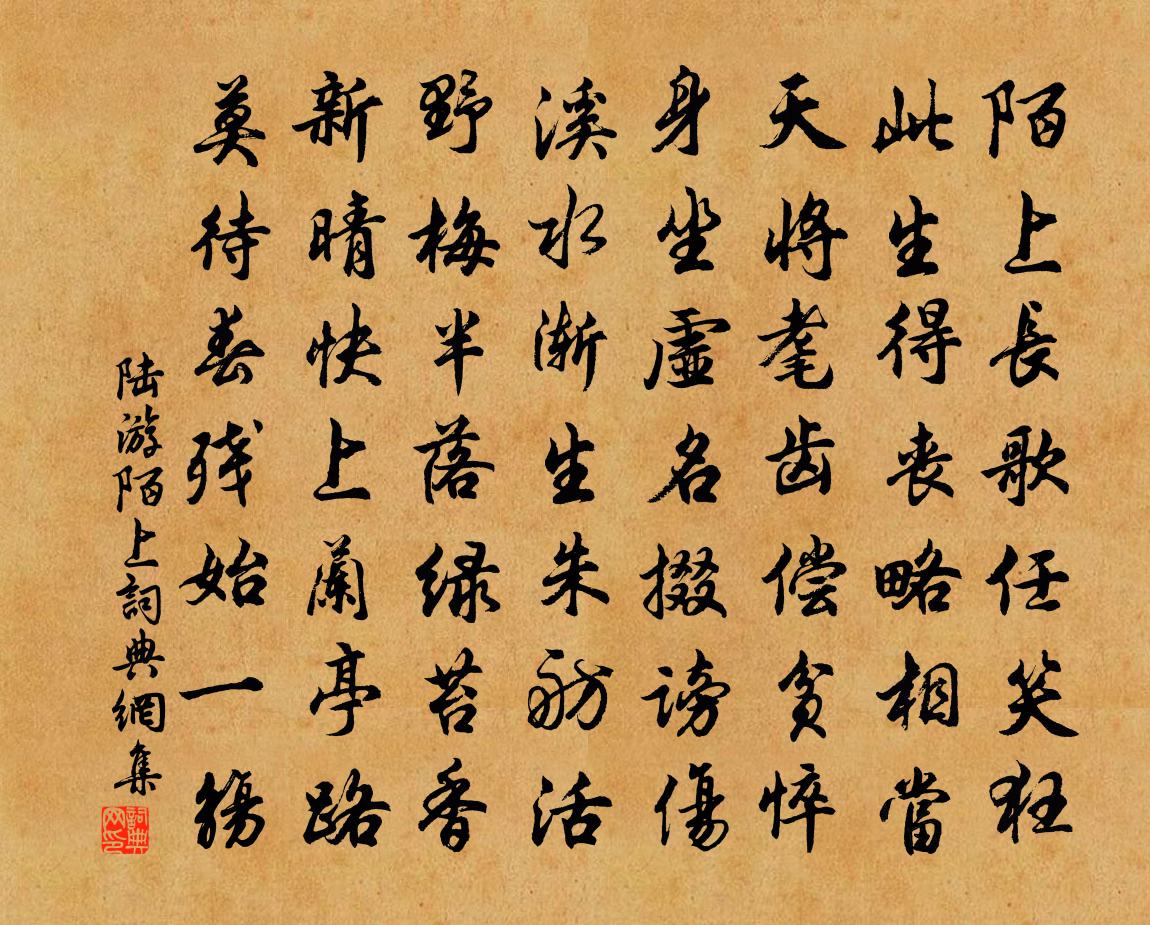 陌上長歌任笑狂
此生得丧略相當
天將耄齿偿贫悴
身坐虛名掇谤傷
溪水渐生朱舫活
野梅半落绿苔香
新晴快上蘭亭路
莫待春残始一觞
陆游陌上詞典網集
詞典网印